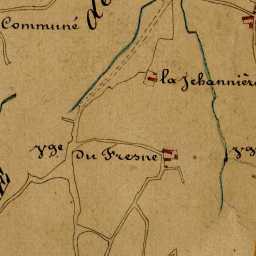 Commune
de
la Jehannière
yge
du Fresne
yg